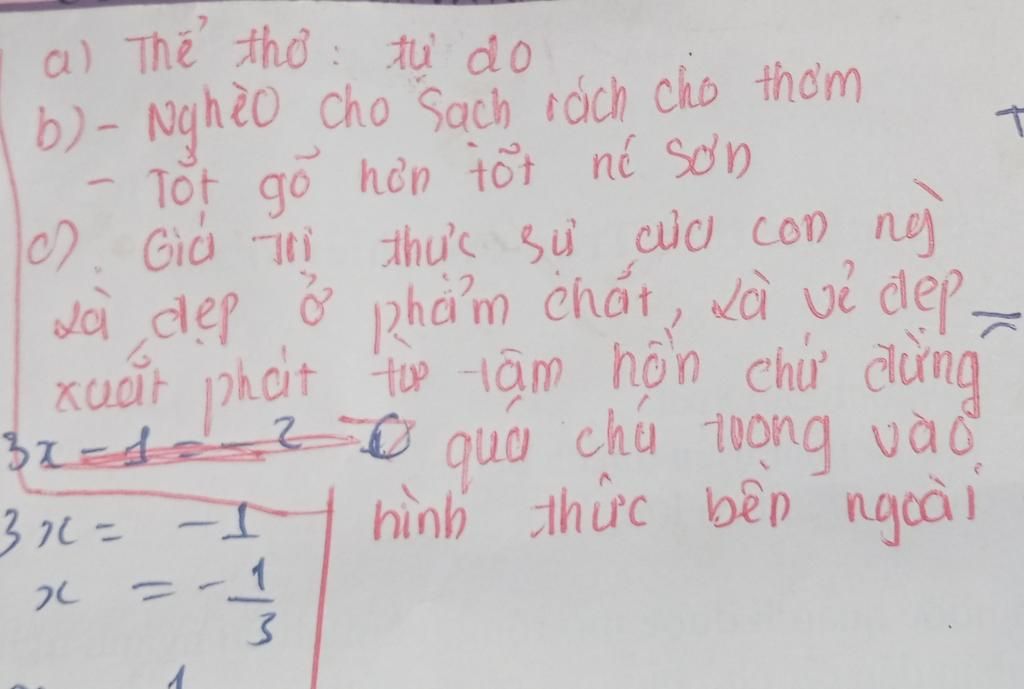 a) Thể thơ: tự do
b) - Nghèo cho sạch rách cho thơm
- Tốt gỗ hơn tốt nc sơn
c). Giá trị thực sự của con ng
là đẹp ở phẩm chất, là vẻ đẹp =
xuất phát từ tâm hồn chứ đừng
3x - 1 = - 2 quá chú trọng vào
3x = -1 hình thức bên ngoài
x = - 1/3